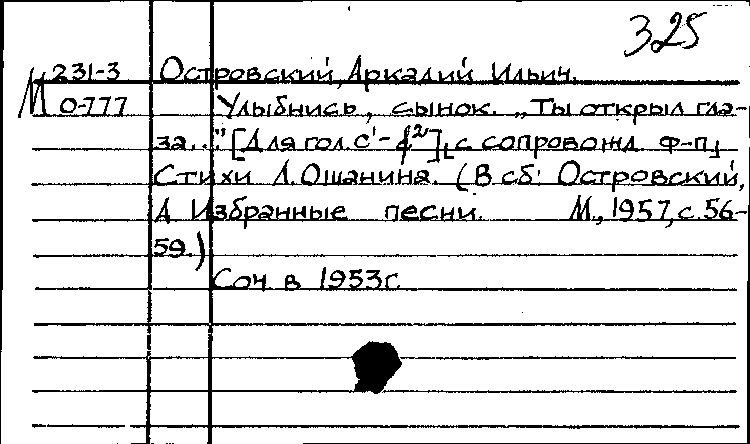 325
М 231-3 Островский, Аркадий Ильич.
О-777 Улыбнись, сынок. „Ты открыл гла-
за..." [Для гол. c¹-f²], [с сопровожд. ф-п]
Стихи Л. Ошанина. (В сб: Островский,
А Избранные песни. М., 1957, с. 56-
59.)
Соч в 1953г